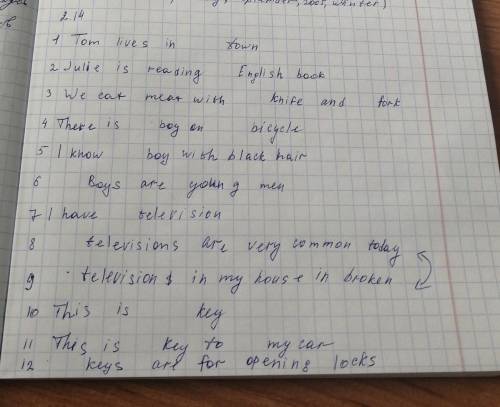 2005, winter)
214
1 Tom lives in town
2 Julie is reading English book
3 We eat meat with knife and fork
4 There is boy on bicycle
5 I know boy with black hair
6 Boys are young men
7 I have television
8 televisions are very common today
9 televisions in my house in broken
10 This is key
11 This is key to my car
12 keys are for opening locks